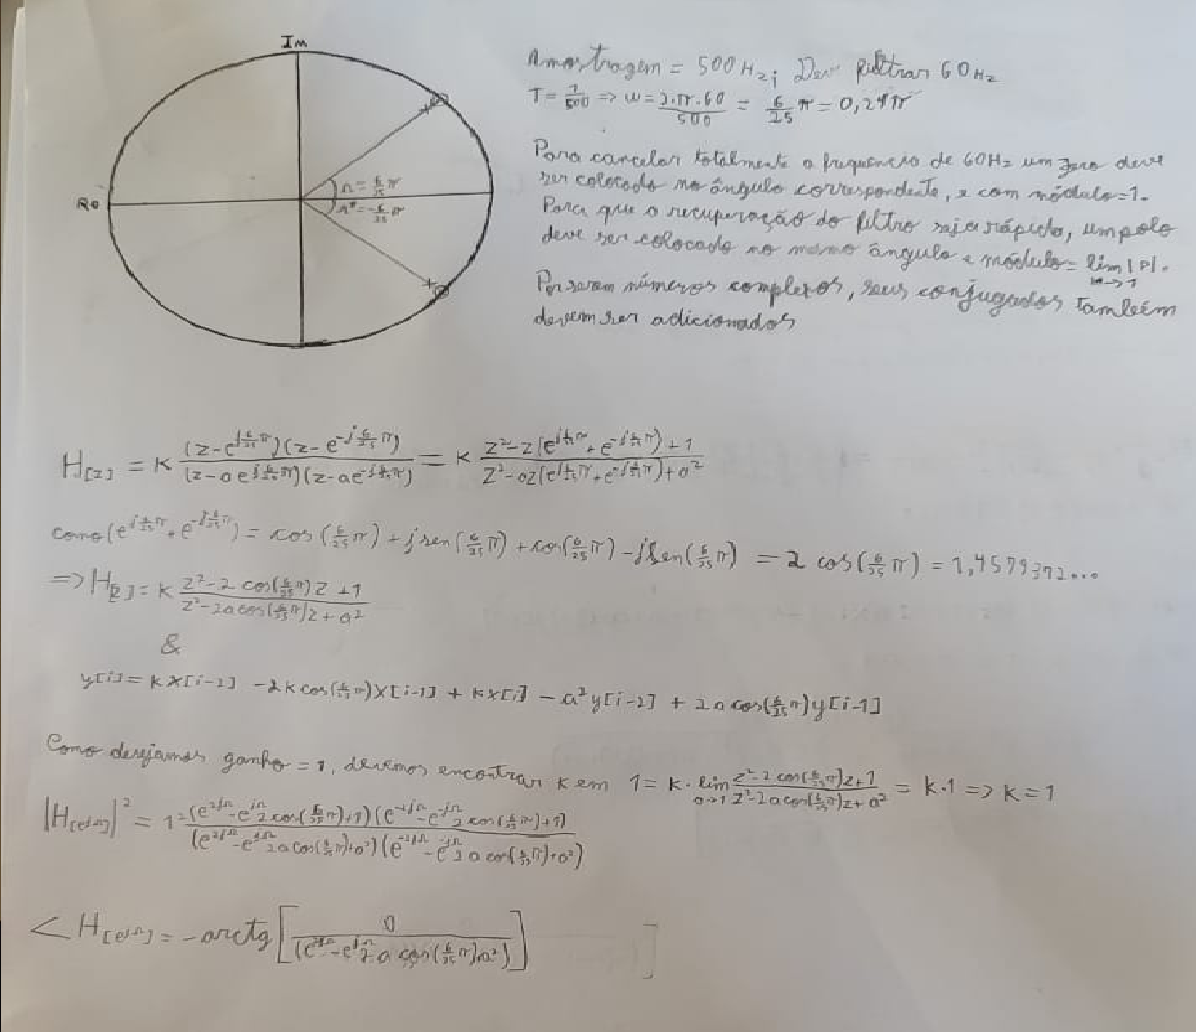 Im
Re
Ω = 6/25 π
Ω* = -6/25 π
Amostragem = 500Hz; Deve filtrar 60Hz
T = 1/500 => ω = 2.π.60/500 = 6/25 π = 0,24π
Para cancelar totalmente a frequência de 60Hz um zero deve
ser colocado no ângulo correspondente, e com módulo=1.
Para que a recuperação do filtro seja rápida, um polo
deve ser colocado no mesmo ângulo e módulo= lim |P|.
Por serem números complexos, seus conjugados também
devem ser adicionados
H[z] = K (z-e^{j6/25 π})(z-e^{-j6/25 π}) / (z-ae^{j6/25 π})(z-ae^{-j6/25 π}) = K z²-z(e^{j6/25 π}+e^{-j6/25 π})+1 / z²-az(e^{j6/25 π}+e^{-j6/25 π})+a²
como (e^{j6/25 π}+e^{-j6/25 π}) = cos(6/25 π) + jsen(6/25 π) + cos(6/25 π) - jsen(6/25 π) = 2 cos(6/25 π) = 1,4579372...
=> H[z] = K z²-2 cos(6/25 π)z +1 / z²-2acos(6/25 π)z + a²
&
y[i] = Kx[i-2] -2Kcos(6/25 π)x[i-1] + Kx[i] - a²y[i-2] + 2acos(6/25 π)y[i-1]
Como desejamos ganho = 1, devemos encontrar K em 1 = K. lim a->1 z²-2 cos(6/25 π)z+1 / z²-2acos(6/25 π)z+a² = K.1 => K = 1
|H[e^{jΩ}]|² = 1² (e^{2jΩ} - e^{jΩ}2cos(6/25 π)+1)(e^{-2jΩ} - e^{-jΩ}2cos(6/25 π)+1) / (e^{2jΩ} - e^{jΩ}2acos(6/25 π)+a²)(e^{-2jΩ} - e^{-jΩ}2acos(6/25 π)+a²)
< H[e^{jΩ}] = -arctg [ 0 / (e^{2jΩ} - e^{jΩ}2.a cos(6/25 π)a²) ] ]